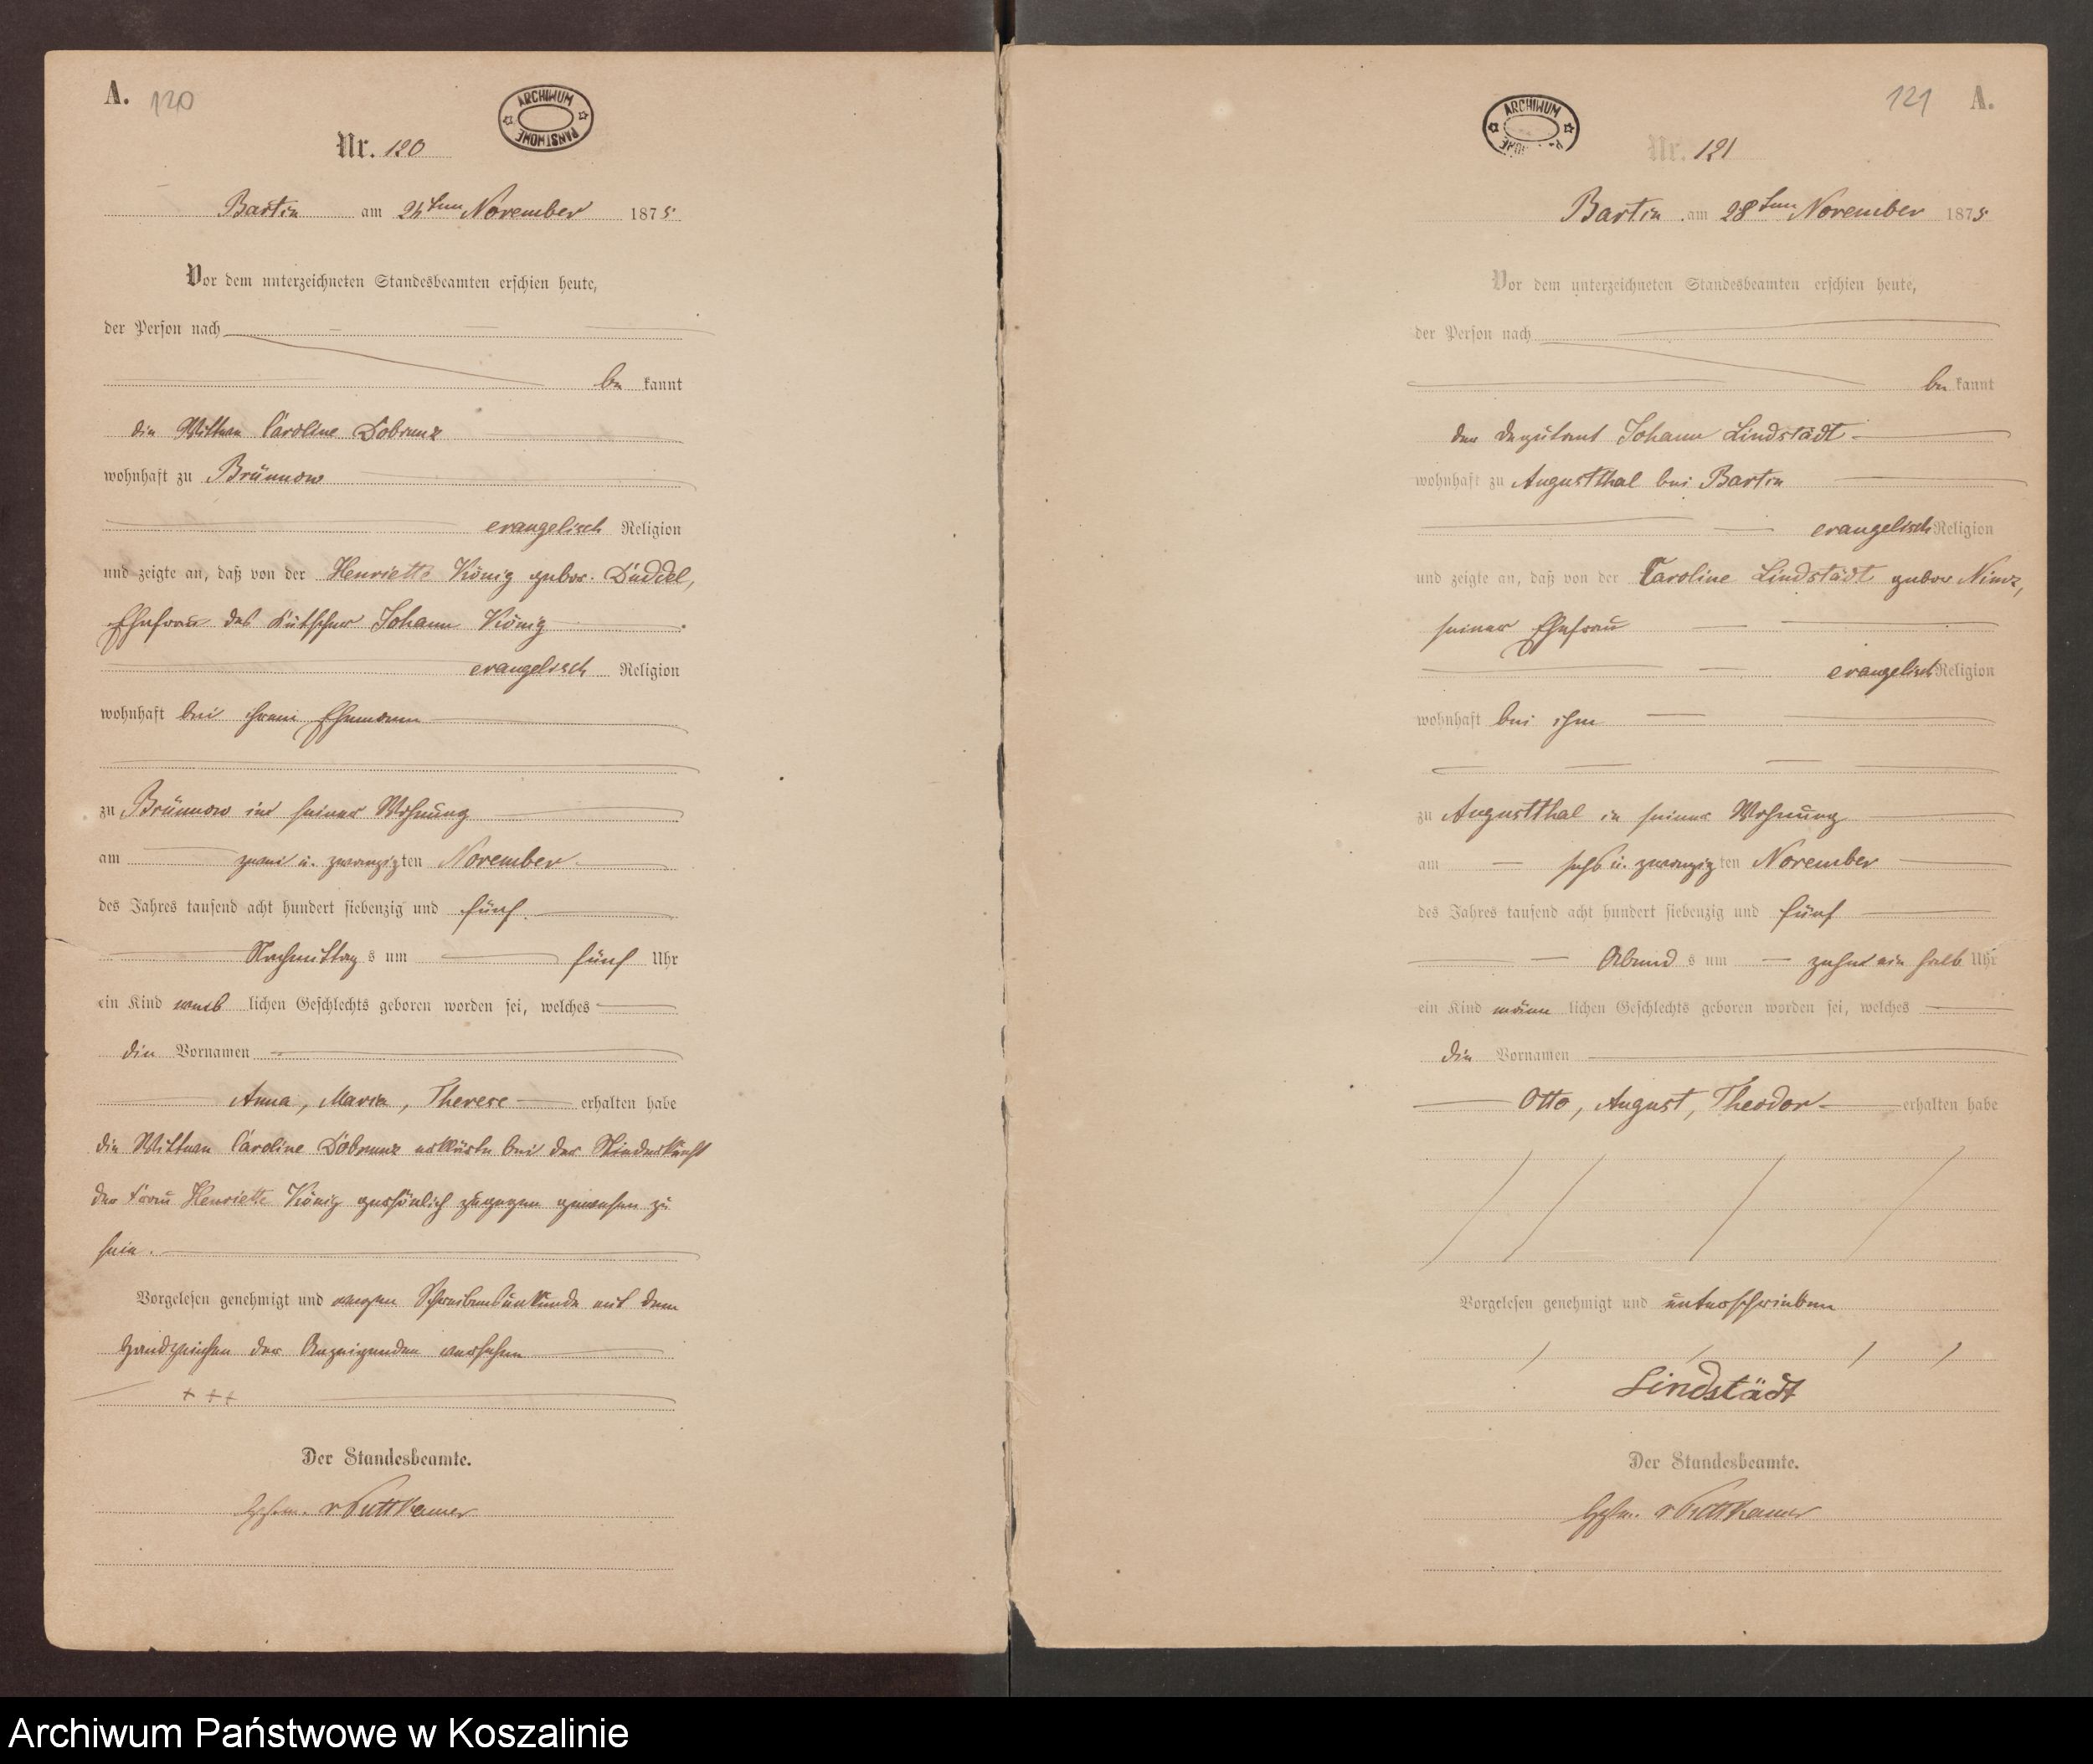 A. 120
ARCHIWUM PAŃSTWOWE
Nr. 120
Bartin am 24ten November 1875
Vor dem unterzeichneten Standesbeamten erschien heute,
der Person nach
be kannt
die Wittwe Caroline
wohnhaft zu Brünnow
evangelisch Religion
und zeigte an, daß von der Henriette König gebor.
Ehefrau des Kutscher Johann König
evangelisch Religion
wohnhaft bei ihrem Ehemann
zu Brünnow in seiner Wohnung
am zwei u. zwanzigten November
des Jahres tausend acht hundert siebenzig und fünf
Nachmittag s um fünf Uhr
ein Kind weib lichen Geschlechts geboren worden sei, welches
die Vornamen
Anna, Maria, Therese erhalten habe
die Wittwe Caroline erklärte bei der Niederkunft
der Frau Henriette König persönlich zugegen gewesen zu
sein.
Vorgelesen genehmigt und wegen Schreibensunkunde mit dem
Handzeichen der Anzeigenden versehen
+ + +
Der Standesbeamte.
v Puttkamer
121 A.
ARCHIWUM
Nr. 121
Bartin am 28ten November 1875
Vor dem unterzeichneten Standesbeamten erschien heute,
der Person nach
be kannt
der Deputant Johann Lindstädt
wohnhaft zu Augustthal bei Bartin
evangelisch Religion
und zeigte an, daß von der Caroline Lindstädt gebor Nimz,
seiner Ehefrau
evangelisch Religion
wohnhaft bei ihm
zu Augustthal in seiner Wohnung
am sechs u. zwanzig ten November
des Jahres tausend acht hundert siebenzig und fünf
Abend s um zehn ein halb Uhr
ein Kind männ lichen Geschlechts geboren worden sei, welches
die Vornamen
Otto, August, Theodor erhalten habe
Vorgelesen genehmigt und unterschrieben
Lindstädt
Der Standesbeamte.
v Puttkamer
Archiwum Państwowe w Koszalinie